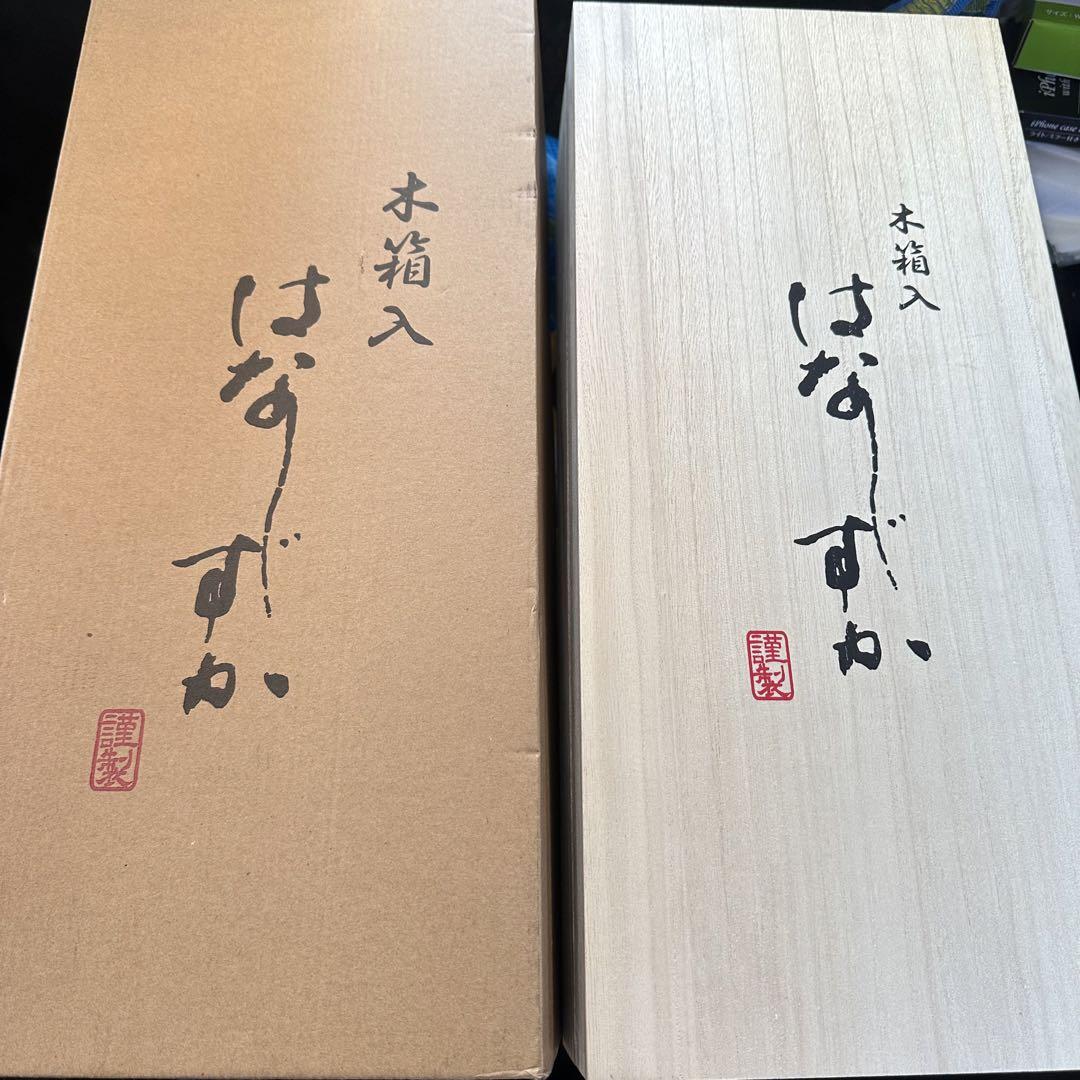 木箱入
はなしずか
謹製
木箱入
はなしずか
謹製
サイズ:
iPh
with
iPhone case
ライト/ミラー付き